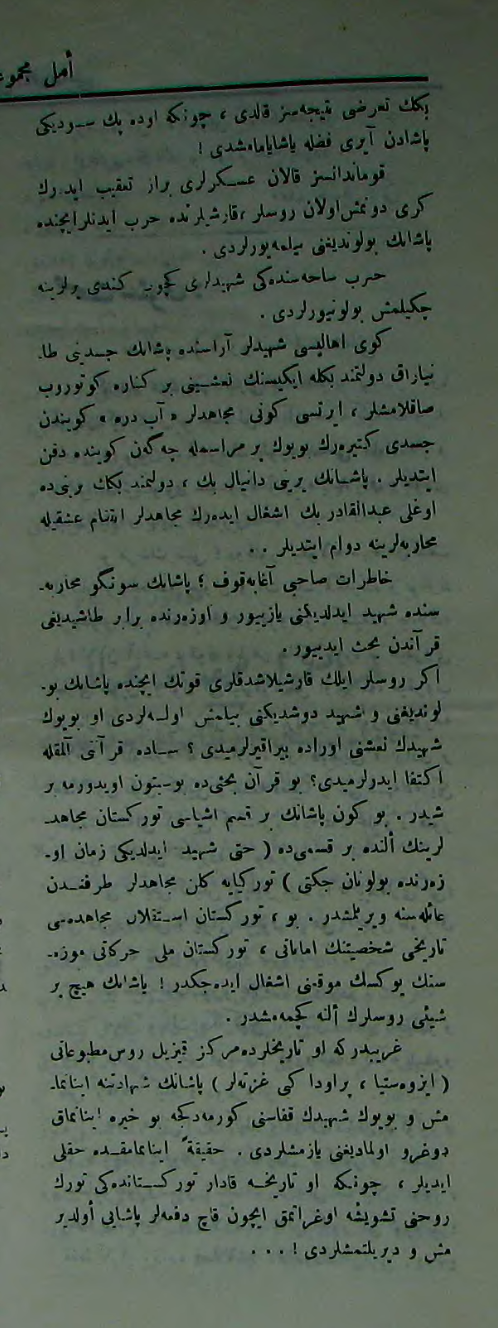 أمل مجموعه
بكك تعرضی نتیجه‌سز قالدی ، چونکه اوده پك سودیکی
پاشادن آیری فضله یاشایامامشدی !
قوماندانسز قالان عسکرلری براز تعقیب ایدرك
کری دونمش‌اولان روسلر ، قارشیلرنده حرب ایدنلرایچنده
پاشانك بولوندیغنی بیلمه‌یورلردی .
حرب ساحه‌سنده‌کی شهیدلری کچوب کندی یرلرینه
چکیلمش بولونیورلردی .
کوی اهالیسی شهیدلر آراسنده پاشانك جسدینی طا‌-
نیاراق دولتمند بکله ایکیسنك نعشینی بر کناره کوتوروب
صاقلامشلر ، ایرتسی کونی مجاهدلر « آب دره » کویندن
جسدی کتیره‌رك بویوك بر مراسمله چه‌کن کوینده دفن
ایتدیلر . پاشانك یرینی دانیال بك ، دولتمند بکك یرینی‌ده
اوغلی عبدالقادر بك اشغال ایده‌رك مجاهدلر انتقام عشقیله
محاربه‌لرینه دوام ایتدیلر . .
خاطرات صاحبی آغابه‌قوف ؛ پاشانك سونگو محاربه‌-
سنده شهید ایدلدیکنی یازییور و اوزه‌رنده برابر طاشیدیغی
قرآندن بحث ایدییور .
اکر روسلر ایلك قارشیلاشدقلری قوتك ایچنده پاشانك بو-
لوندیغنی و شهید دوشدیکنی بیلمش اولسه‌لردی او بویوك
شهیدك نعشنی اوراده بیراقیرلرمیدی ؟ ساده قرآنی آلمقله
اکتفا ایدرلرمیدی؟ بو قرآن بحثی‌ده بوسبتون اویدورمه بر
شیدر . بو کون پاشانك بر قسم اشیاسی تورکستان مجاهد-
لرینك ألنده بر قسمی‌ده ( حتی شهید ایدلدیکی زمان او-
زه‌رنده بولونان جکتی ) تورکیایه کلن مجاهدلر طرفندن
عائله‌سنه ویریلمشدر . بو ، تورکستان استقلال مجاهده‌سی
تاریخی شخصیتنك اماناتی ، تورکستان ملی حرکاتی موزه‌-
سنك یوکسك موقعنی اشغال ایده‌جکدر ! پاشانك هیچ بر
شیئی روسلرك ألنه کچمه‌مشدر .
غریبدرکه او تاریخلرده‌مرکز قیزیل روس‌مطبوعاتی
( ایزوه‌ستیا ، پراودا کبی غزته‌لر ) پاشانك شهادتنه اینانما-
مش و بویوك شهیدك قفاسنی کورمه‌دکجه بو خبره اینانماق
دوغرو اولمادیغنی یازمشلردی . حقیقةً اینانمامقده حقلی
ایدیلر ، چونکه او تاریخه قادار تورکستانده‌کی تورك
روحنی تشویشه اوغراتمق ایچون قاچ دفعه‌لر پاشایی أولدیر
مش و دیریلتمشلردی ! . . .